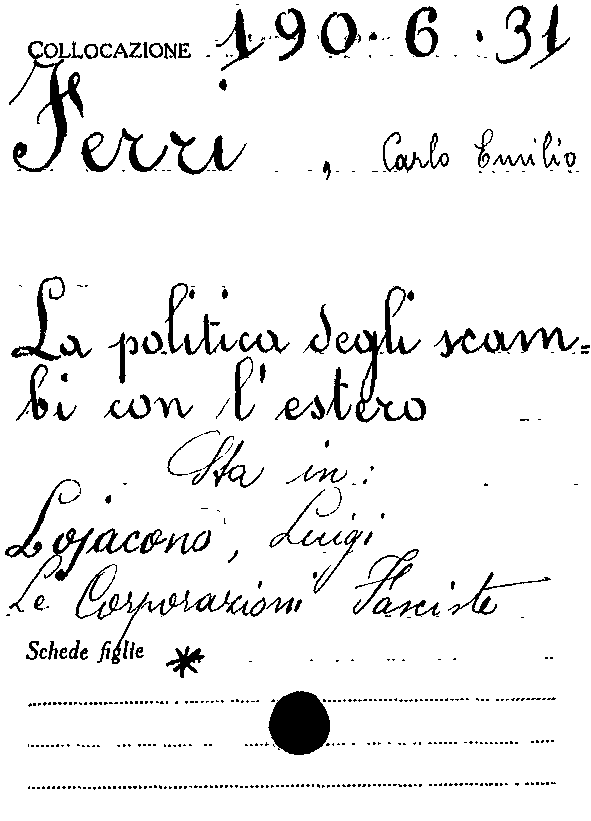 COLLOCAZIONE 190.6.31
Ferri, Carlo Emilio
La politica degli scam=
bi con l'estero
Sta in:
Lojacono, Luigi
Le Corporazioni Fasciste
Schede figlie *